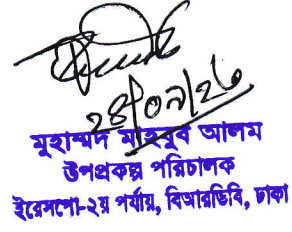 ২৪/০৯/২৬
মুহাম্মদ মাহবুব আলম
উপপ্রকল্প পরিচালক
ইরেসপো-২য় পর্যায়, বিআরডিবি, ঢাকা